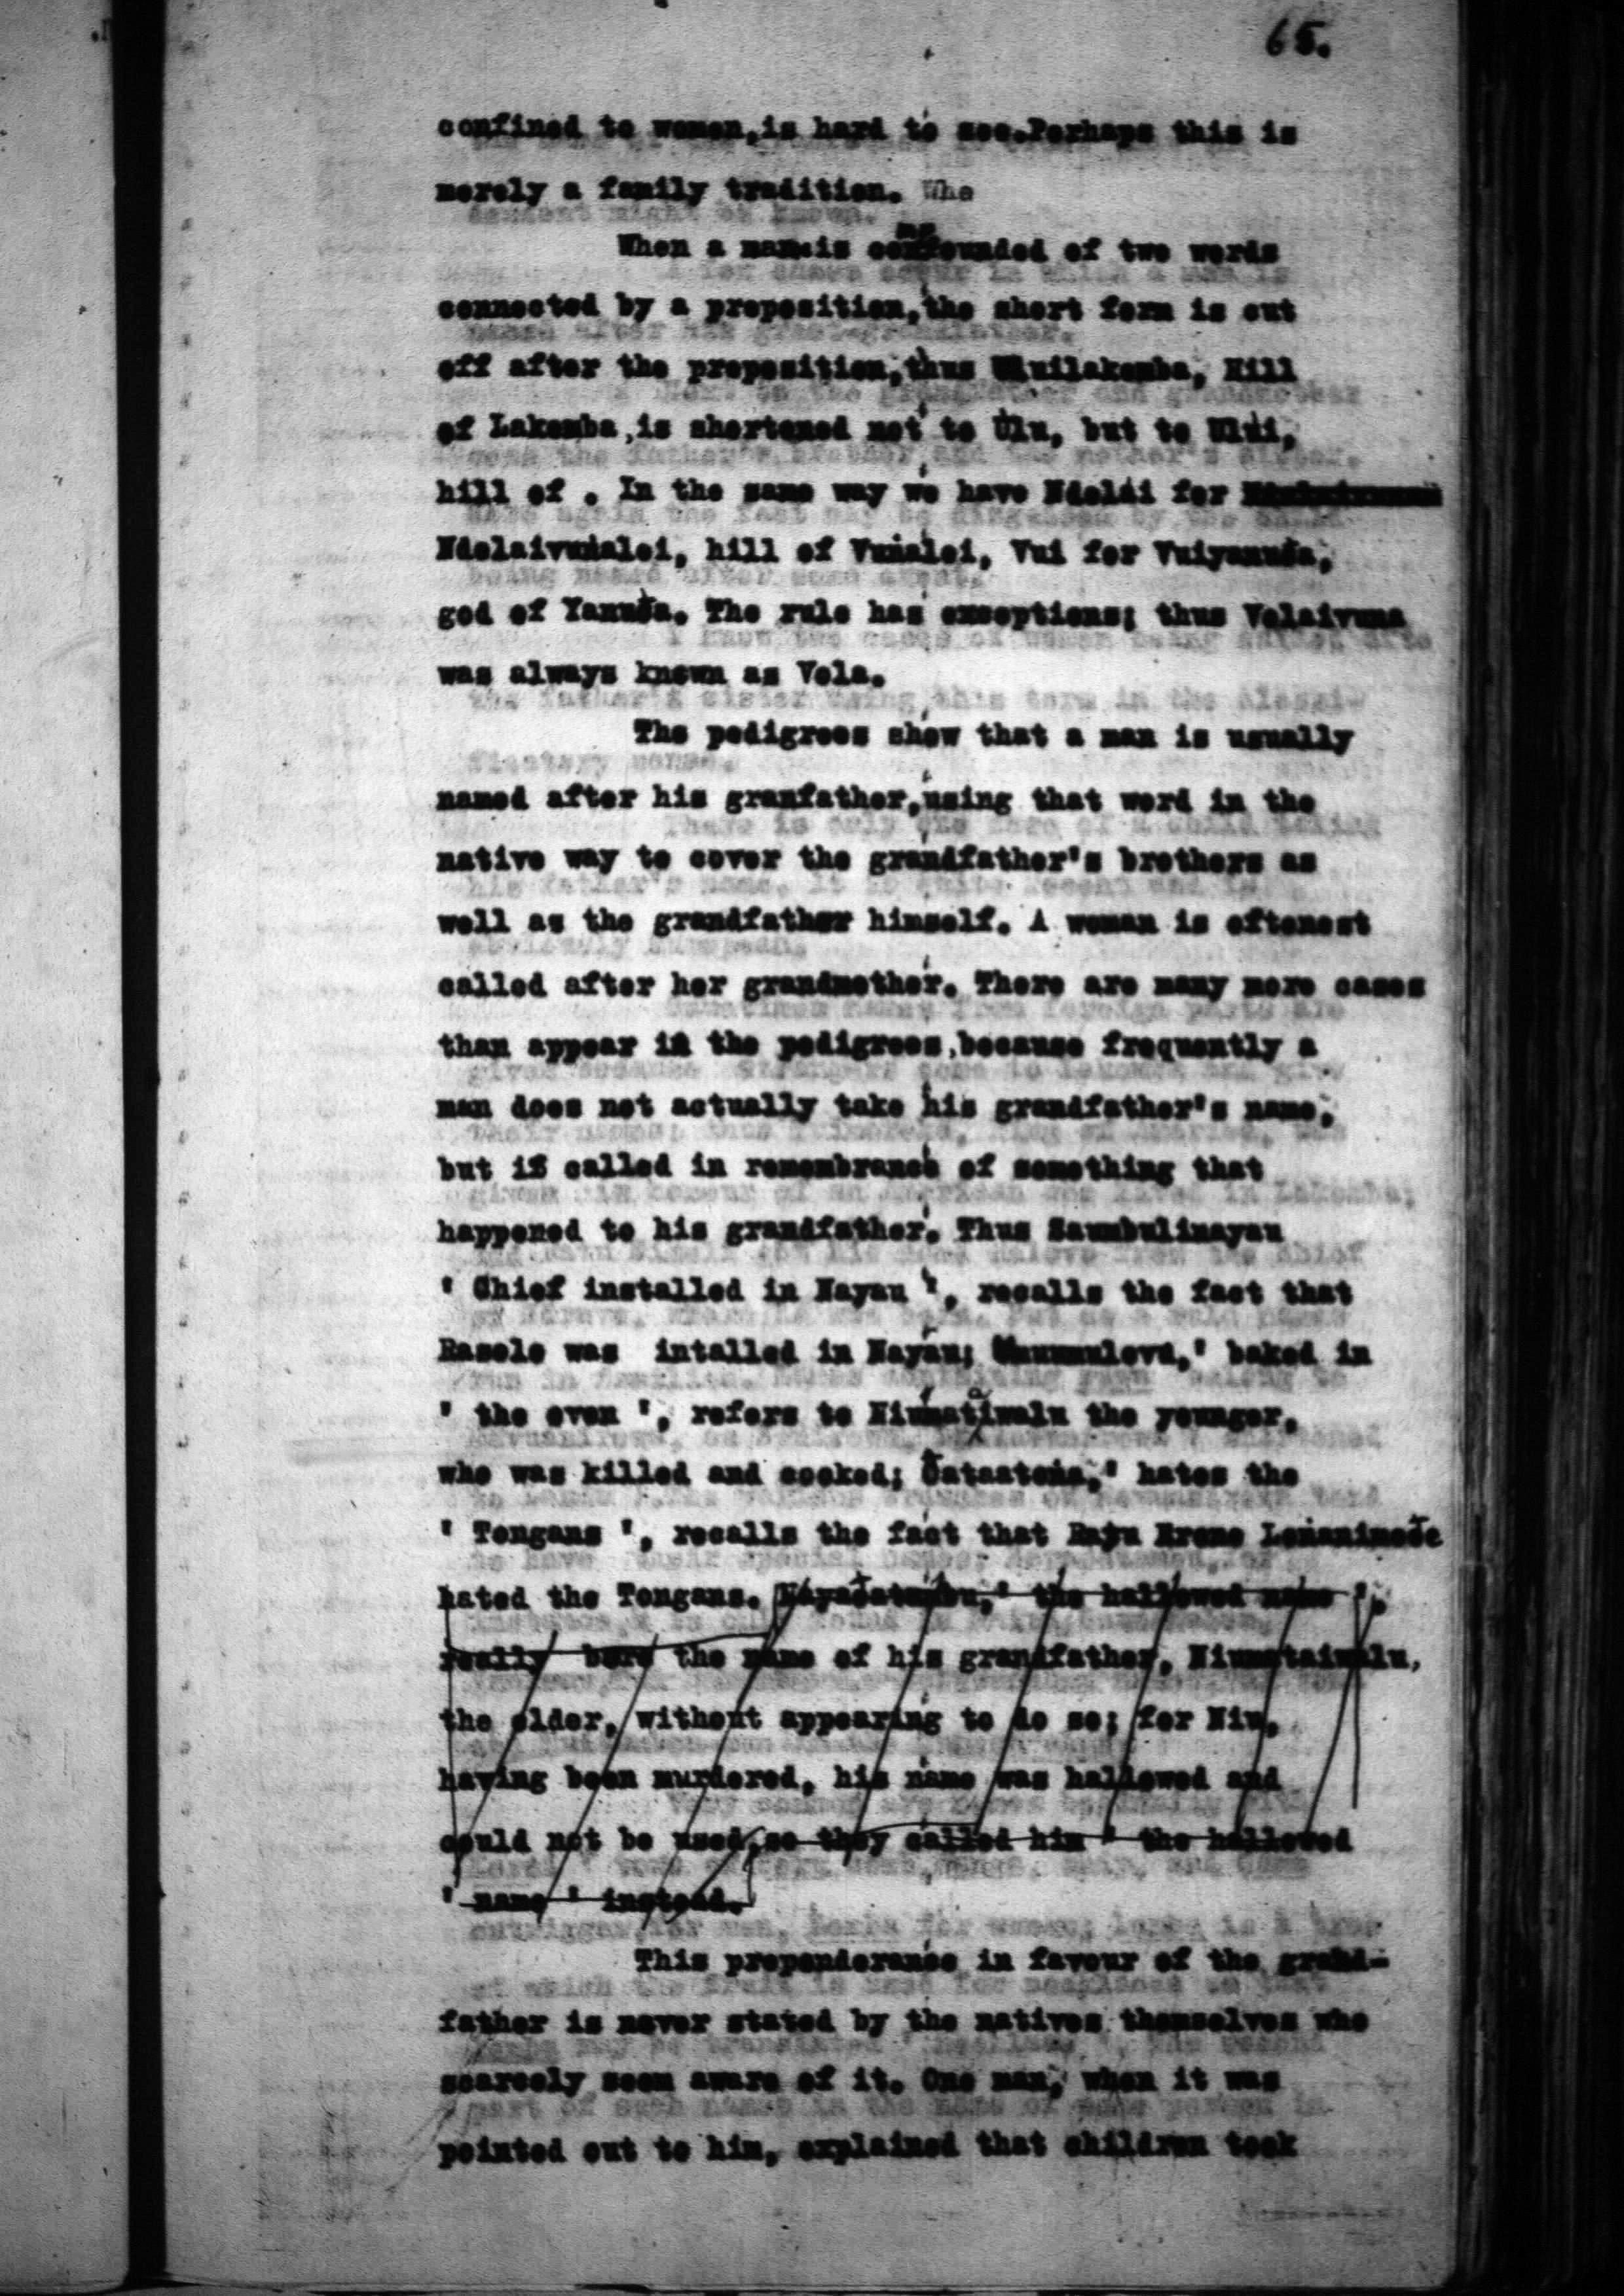 65.
confined to women,is hard to see.Perhaps this is
merely a family tradition. Whe
When a name is compounded of two words
connected by a preposition,the short form is cut
off after the preposition,thus Uluilakemba, Hill
of Lakemba,is shortened not to Ulu, but to Ului,
hill of . In the same way we have Ndelai for
Ndelaivuṅalei, hill of Vuṅalei, Vui for Vuiyanuda,
god of Yanuda. The rule has exceptions; thus Velaivuna
was always known as Vela.
The pedigrees show that a man is usually
named after his granfather,using that word in the
native way to cover the grandfather's brothers as
well as the grandfather himself. A woman is oftenest
called after her grandmother. There are many more cases
than appear in the pedigrees,because frequently a
man does not actually take his grandfather's name,
but is called in remembrance of something that
happened to his grandfather. Thus Saumbulinayau
' Chief installed in Nayau ', recalls the fact that
Rasolo was intalled in Nayau; ' baked in
' the oven ', refers to Niumataiwalu the younger,
who was killed and cooked; Đataatoṅa,' hates the
' Tongans ', recalls the fact that Ratu Mreme
hated the Tongans. Nayađatambu,' the hallowed name ',
really bore the name of his grandfather, Niumataiwalu,
the older, without appearing to do so; for Niu,
having been murdered, his name was hallowed and
could not be used,so they called him ' the hallowed
' name ' instead.
This preponderance in favour of the grand-
father is never stated by the natives themselves who
scarcely seem aware of it. One man, when it was
pointed out to him, explained that children took